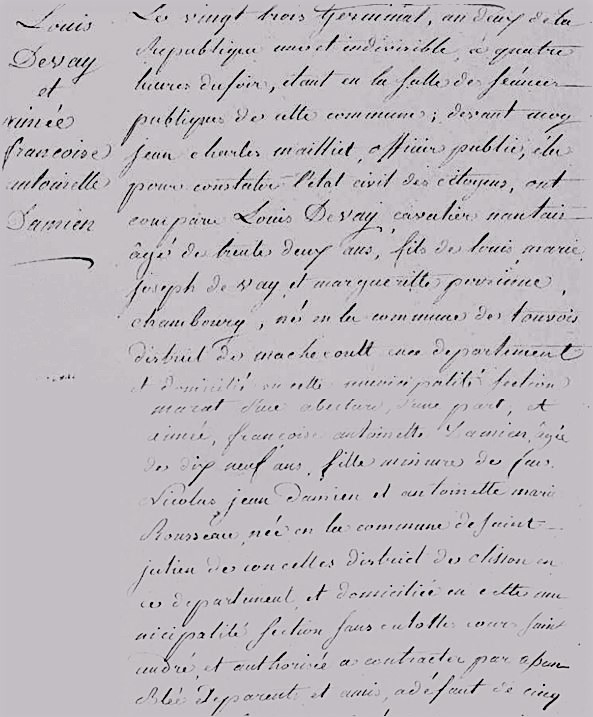 Louis
Devay
et
aimée
francoise
antoinette
Damien
Le vingt trois Germinal, an deux de la
Republique une et indivisible, a quatre
heures du soir, étant en la salle de séances
publiques de cette commune; devant moy
Jean charles mailliet, officier public, élu
pour constater l'état civil des citoyens, ont
comparu Louis Devay cavalier nantais
âgé de trente deux ans, fils de louis marie
joseph de vay et margueritte
chambourg, né en la commune de touvois
district de machecoult en ce departement
et domicilié en cette municipalité section
marat d'une part, et
aimée, francoise antoinette Damien, âgée
de dix neuf ans, fille mineure de feus
Nicolas jean Damien et antoinette marie
Rousseau, née en la commune de saint
julien de concelles district de clisson en
ce departement et domiciliée en cette mu
nicipalité section sans culotte cour saint
andré, et authorisée a contracter par assem
blée de parents et amis, a défaut de cinq